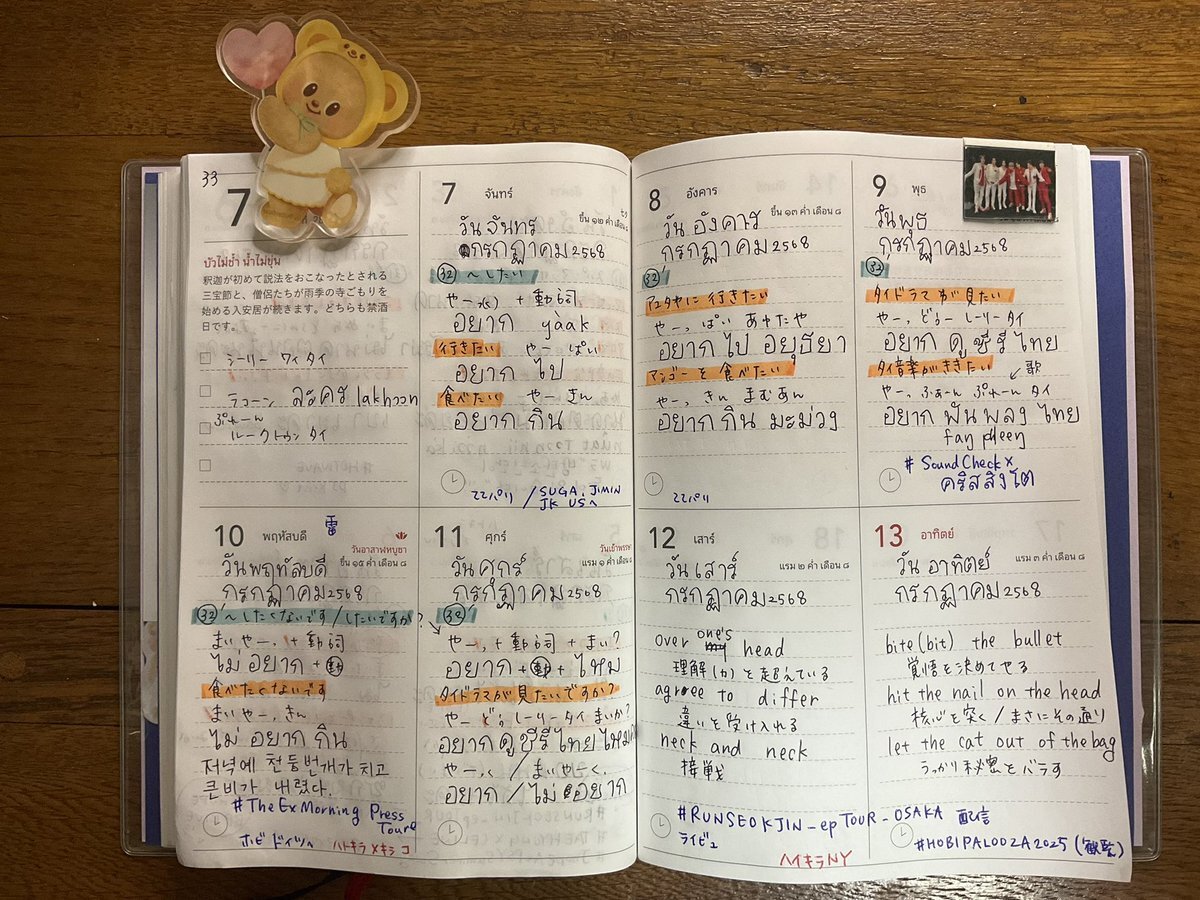 33
7
บัวไม่ช้ำ น้ำไม่ขุ่น
釈迦が初めて説法をおこなったとされる
三宝節と、僧侶たちが雨季の寺ごもりを
始める入安居が続きます。どちらも禁酒
日です。
シーリー ワィ タイ
ラコーン ละคร lakhoon
プレーン
ルークトゥン タイ
7 จันทร์
ขึ้น ๑๒ ค่ำ เดือน ๘
วันจันทร์
กรกฎาคม 2568
㉜ 〜したい
やー(く) + 動詞
อยาก yàak
行きたい やー ぱい
อยาก ไป
食べたい やー きん
อยาก กิน
ココパリ / SUGA, JIMIN
JK USへ
8 อังคาร
ขึ้น ๑๓ ค่ำ เดือน ๘
วันอังคาร
กรกฎาคม 2568
㉜
アユタヤに行きたい
やー, ぱい あゆたや
อยาก ไป อยุธยา
マンゴーを食べたい
やー, きん まむあん
อยาก กิน มะม่วง
ココパリ
9 พุธ
วันพุธ
กรกฎาคม 2568
㉜
タイドラマが見たい
やー, どぅー しーりー タイ
อยาก ดู ซีรีี่ ไทย
タイ音楽がききたい 歌
やー, ふぁーん ぷれーん タイ
อยาก ฟัน พลง ไทย
fang pleeng
#SoundCheck x
คริสสิงโต
10 พฤหัสบดี 雷
วันอาสาฬหบูชา
ขึ้น ๑๕ ค่ำ เดือน ๘
วันพฤหัสบดี
กรกฎาคม 2568
㉝ 〜したくないです/したいですか?
まいやー, + 動詞
ไม่ อยาก + 動
食べたくないです
まいやー, きん
ไม่ อยาก กิน
저녁에 천둥번개가 치고
큰비가 내렸다.
#TheExMorning Press
Tour
ホビ ドイツへ ハトキラメキラ コ
11 ศุกร์
วันเข้าพรรษา
แรม ๑ ค่ำ เดือน ๘
วันศุกร์
กรกฎาคม 2568
㉜
やー, + 動詞 + まい?
อยาก + 動 + ไหม
タイドラマが見たいですか?
やー どぅ しーリータイ まいか?
อยาก ดู ซีรี่ ไทย ไหม
やー, く / まいやーく.
อยาก / ไม่ อยาก
12 เสาร์
แรม ๒ ค่ำ เดือน ๘
วันเสาร์
กรกฎาคม 2568
over one's head
理解(力)を超えている
agree to differ
違いを受け入れる
neck and neck
接戦
#RUNSEOKJIN_epTOUR_OSAKA 配信
ライビュ
ハイキラNY
13 อาทิตย์
แรม ๓ ค่ำ เดือน ๘
วันอาทิตย์
กรกฎาคม 2568
bite(bit) the bullet
覚悟を決めてやる
hit the nail on the head
核心を突く/まさにその通り
let the cat out of the bag
うっかり秘密をバラす
#HOBIPALOOZA2025 (観覧)